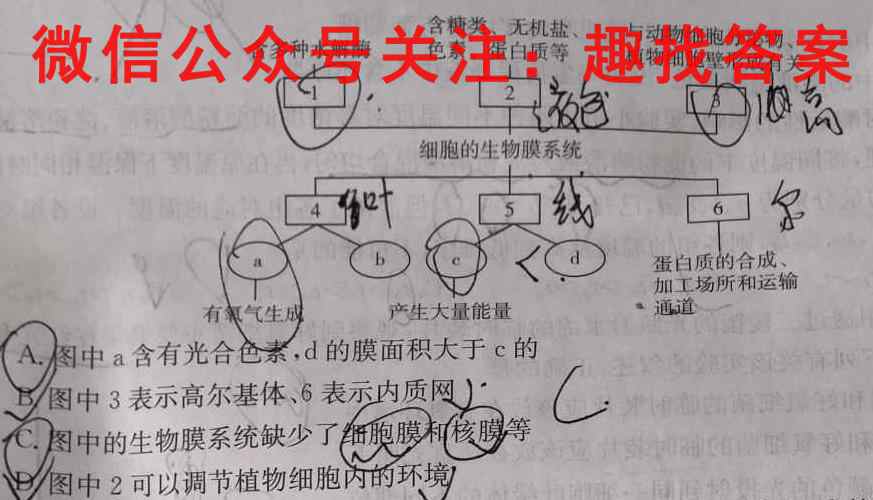 微信公众号关注：趣找答案
含糖类、无机盐、
色素、蛋白质等
1
2
3
液包
细胞的生物膜系统
4
叶
5
线
6
a
b
c
d
有氧气生成
产生大量能量
蛋白质的合成、
加工场所和运输
通道
A. 图中 a 含有光合色素,d 的膜面积大于 c 的
B. 图中 3 表示高尔基体、6 表示内质网
C. 图中的生物膜系统缺少了细胞膜和核膜等
D. 图中 2 可以调节植物细胞内的环境
C